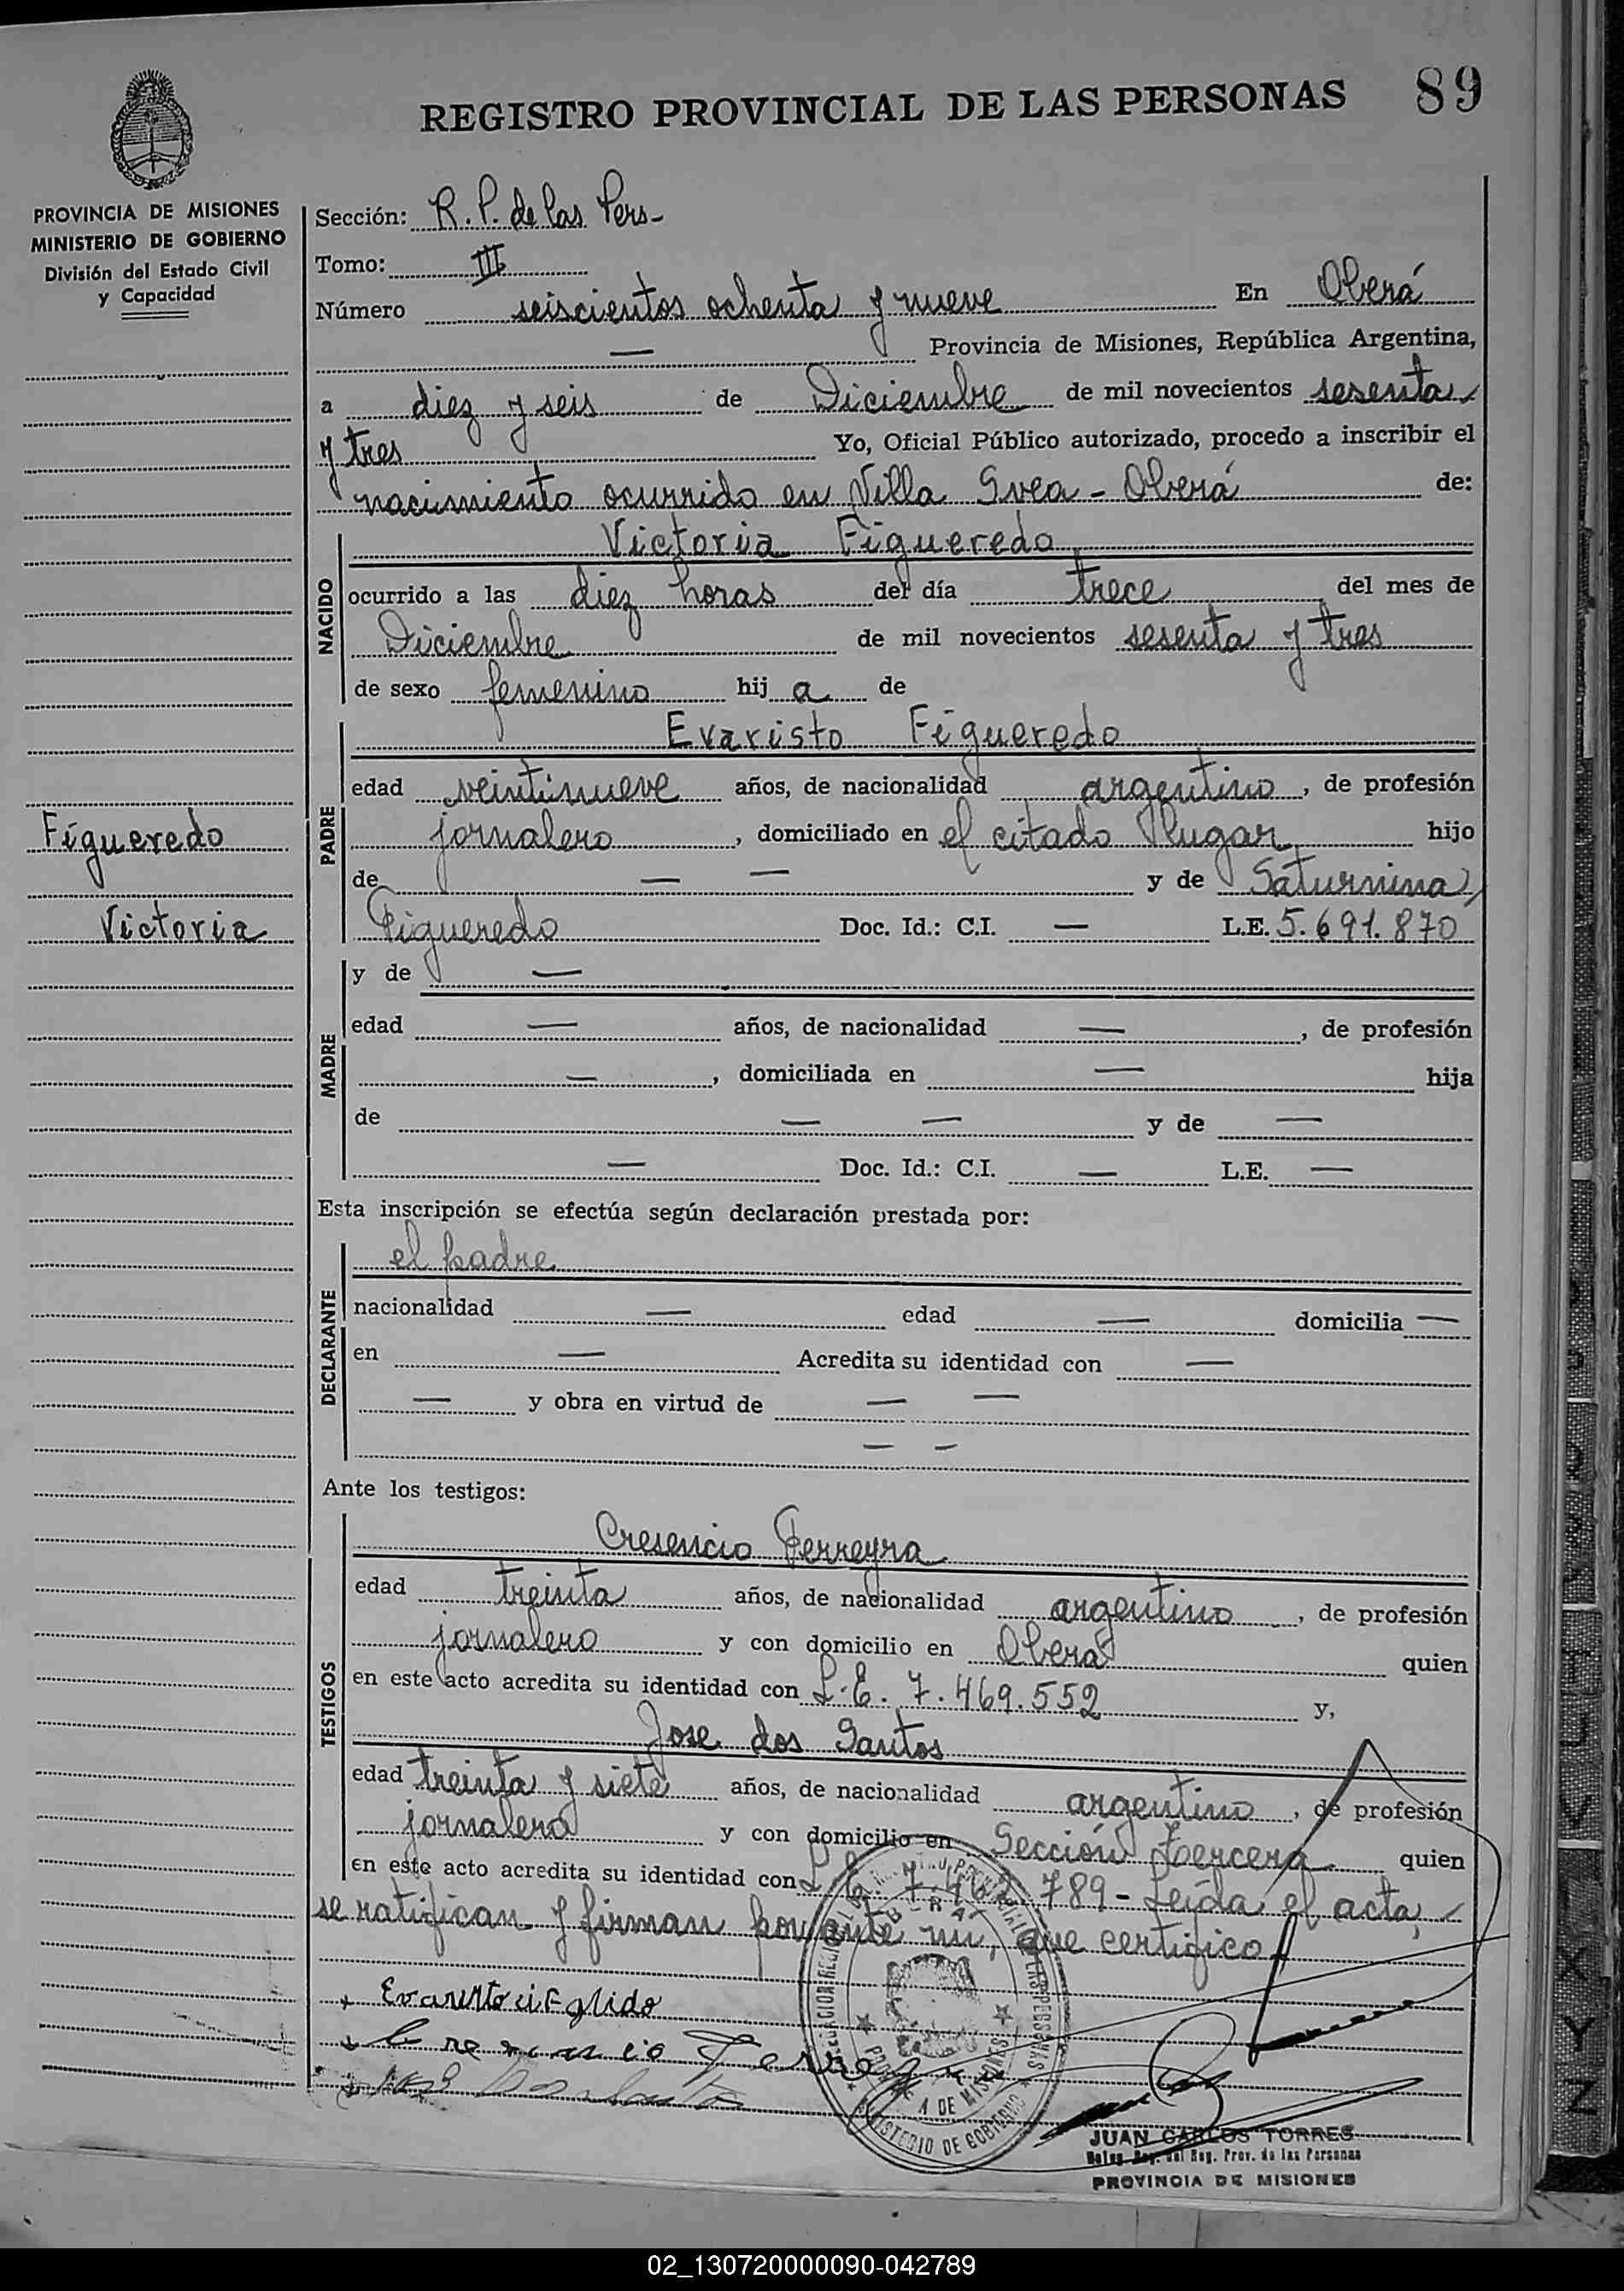 REGISTRO PROVINCIAL DE LAS PERSONAS 89
PROVINCIA DE MISIONES
MINISTERIO DE GOBIERNO
División del Estado Civil
y Capacidad
Sección: R. P. de las Pers-
Tomo: III
Número seiscientos ochenta y nueve En Oberá
— Provincia de Misiones, República Argentina,
a diez y seis de Diciembre de mil novecientos sesenta
y tres Yo, Oficial Público autorizado, procedo a inscribir el
nacimiento ocurrido en Villa Svea - Oberá de:
NACIDO
Victoria Figueredo
ocurrido a las diez horas del día trece del mes de
Diciembre de mil novecientos sesenta y tres
de sexo femenino hij a de
PADRE
Evaristo Figueredo
edad veintinueve años, de nacionalidad argentino, de profesión
jornalero, domiciliado en el citado lugar hijo
de — — y de Saturnina
Figueredo Doc. Id.: C.I. — L.E. 5.691.870
Figueredo
Victoria
MADRE
y de —
edad — años, de nacionalidad —, de profesión
—, domiciliada en — hija
de — — y de —
— Doc. Id.: C.I. — L.E. —
Esta inscripción se efectúa según declaración prestada por:
DECLARANTE
el padre
nacionalidad — edad — domicilia —
en — Acredita su identidad con —
— y obra en virtud de — —
— —
Ante los testigos:
TESTIGOS
Cresencio Ferreyra
edad treinta años, de nacionalidad argentino, de profesión
jornalero y con domicilio en Oberá quien
en este acto acredita su identidad con L.E. 7.469.552 y,
Jose dos Santos
edad treinta y siete años, de nacionalidad argentino, de profesión
jornalero y con domicilio en Sección tercera quien
en este acto acredita su identidad con 789- Leída el acta,
se ratifican y firman por ante mi, que certifico.
PROVINCIA DE MISIONES
MINISTERIO DE GOBIERNO
JUAN CARLOS TORRES
Deleg. Reg. del Reg. Prov. de las Personas
PROVINCIA DE MISIONES
02_130720000090-042789